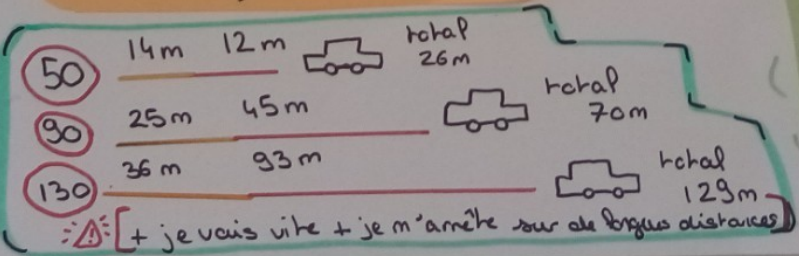 14m 12m total
50 26m
25m 45m total
90 70m
36m 93m total
130 129m
⚠ [+ je vais vite + je m'arrête sur de longues distances]